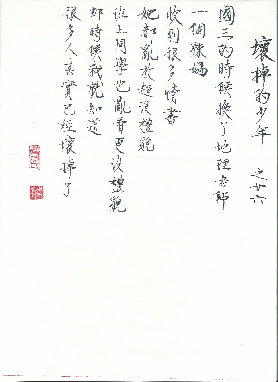 壞掉的少年 之廿六
國三的時候換了地理老師
一個辣媽
收到很多情書
她都亂放超沒禮貌
班上同學也亂看更沒禮貌
那時候我就知道
很多人其實已經壞掉了